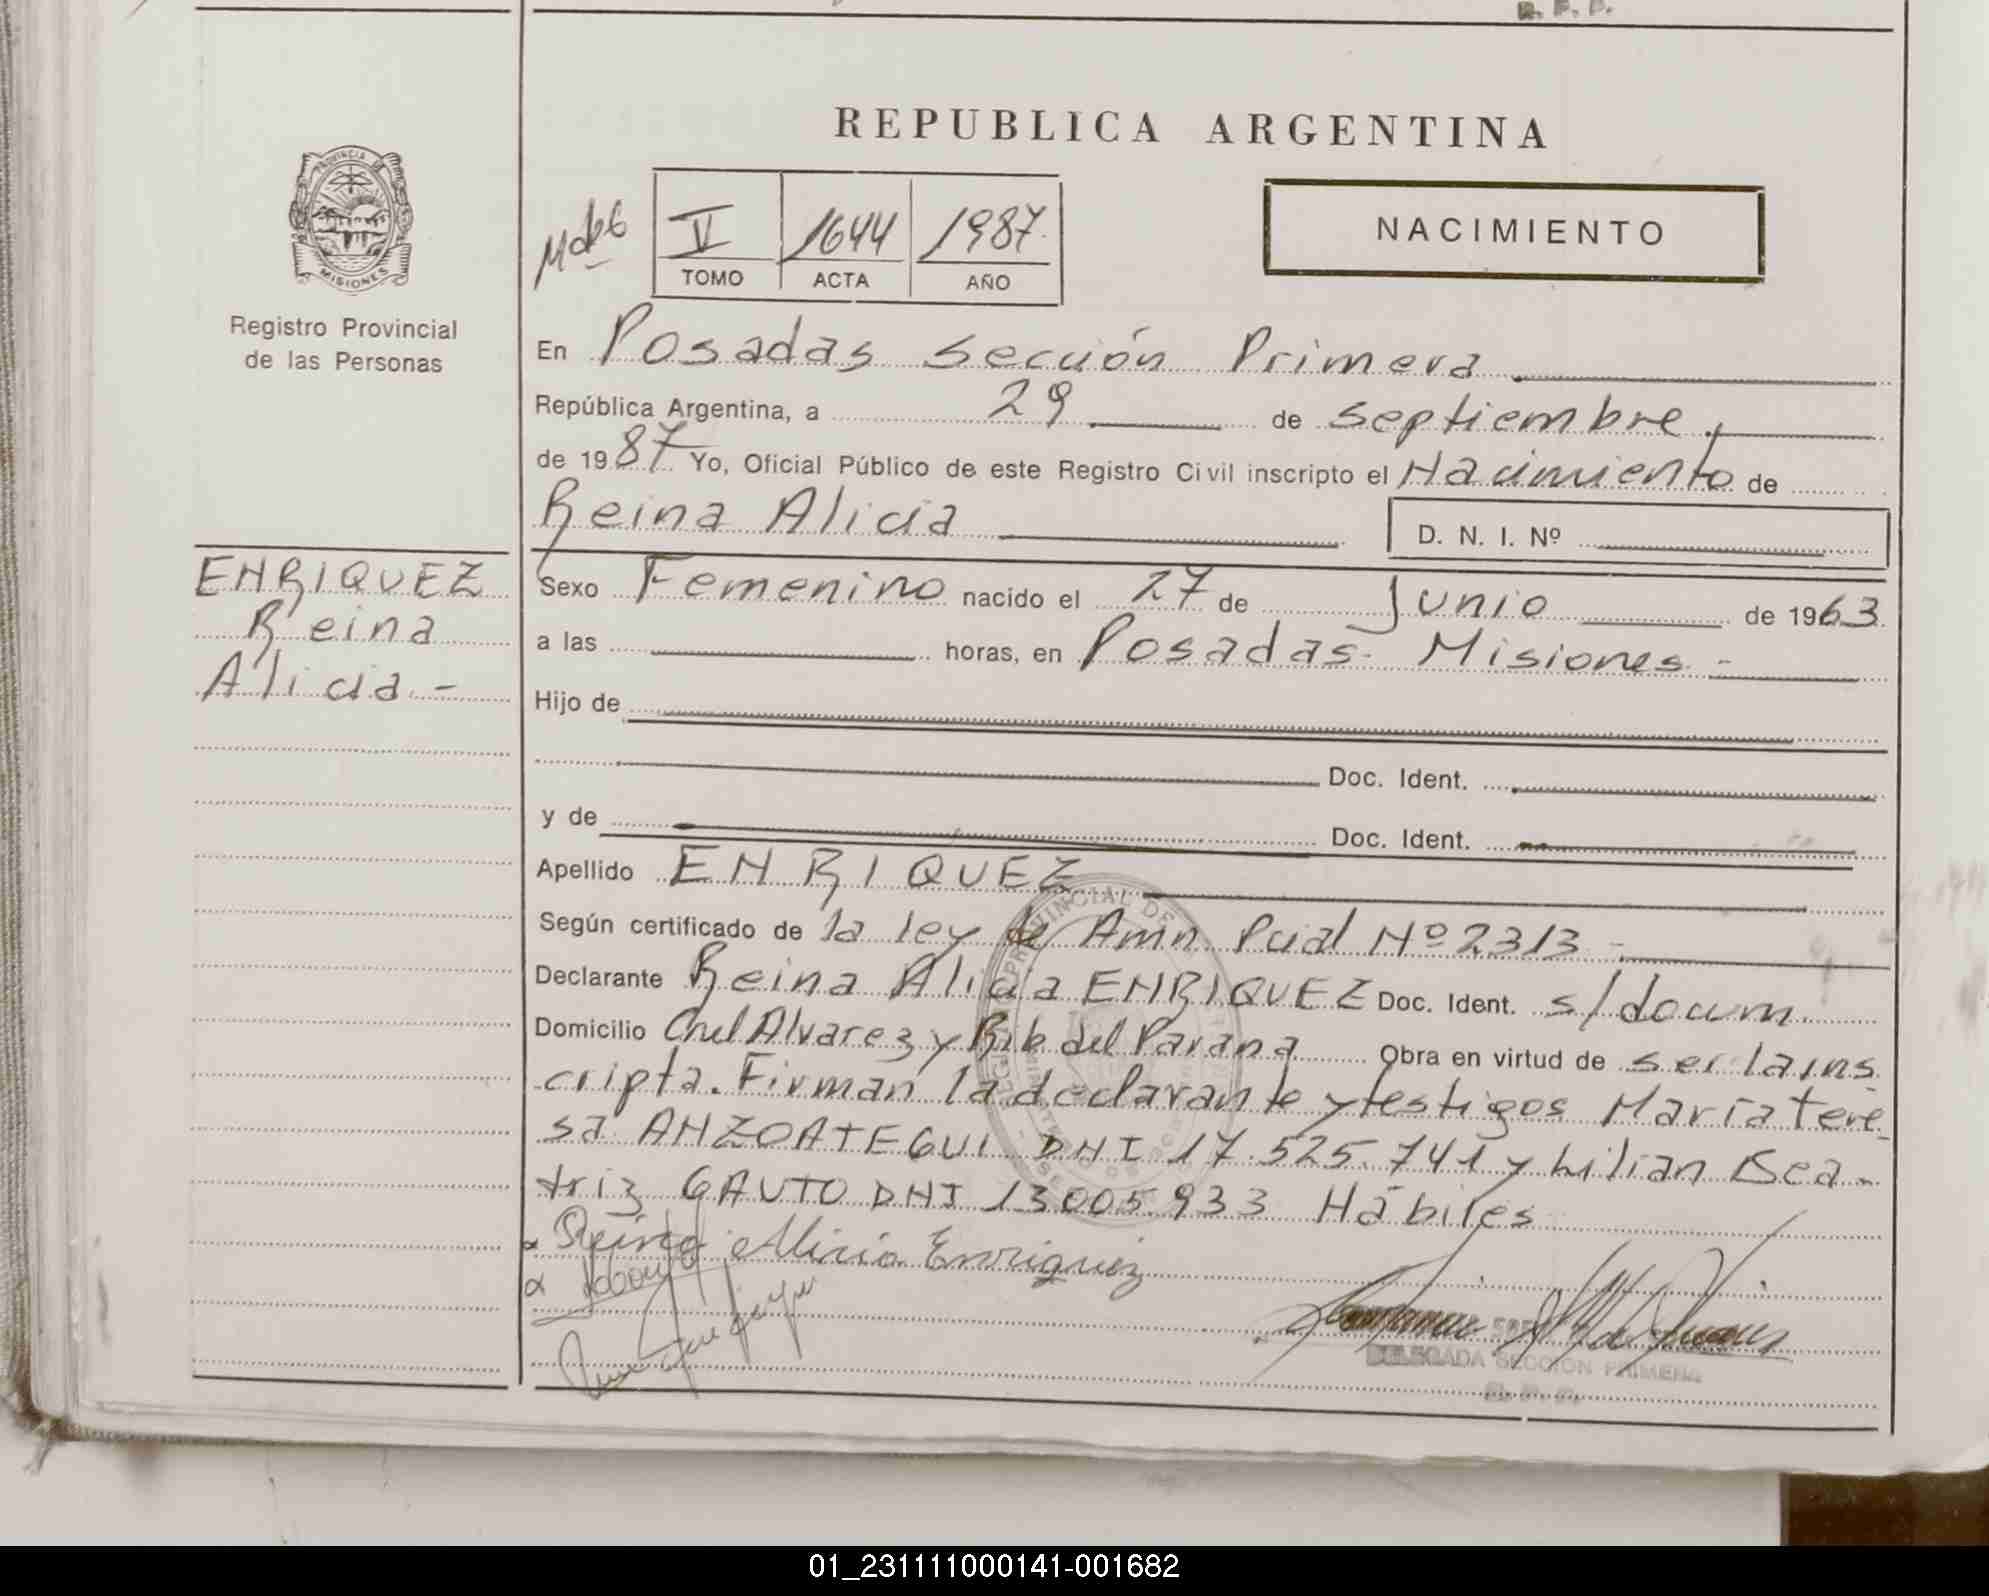 R. P. P.
REPUBLICA ARGENTINA
PROVINCIA DE
MISIONES
Registro Provincial
de las Personas
V 1644 1987.
TOMO ACTA AÑO
NACIMIENTO
En Posadas Sección Primera
República Argentina, a 29 de septiembre
de 1987 Yo, Oficial Público de este Registro Civil inscripto el Nacimiento de
Reina Alicia
D. N. I. Nº
ENRIQUEZ
Reina
Alicia -
Sexo Femenino nacido el 27 de Junio de 1963
a las horas, en Posadas. Misiones -
Hijo de
Doc. Ident.
y de Doc. Ident.
Apellido ENRIQUEZ
Según certificado de la ley de Amn. Pcial Nº 2313 -
Declarante Reina Alicia ENRIQUEZ Doc. Ident. s/docum.
Domicilio Cnel Alvarez y Rib del Parana Obra en virtud de ser la ins
cripta. Firman la declarante y testigos María Tere
sa ANZOATEGUI DNI 17.525.741 y Lilian Bea-
triz GAUTO DNI 13005.933 Hábiles
Reina Alicia Enriquez
DELEGADA SECCION PRIMERA
R. P. P.
01_231111000141-001682